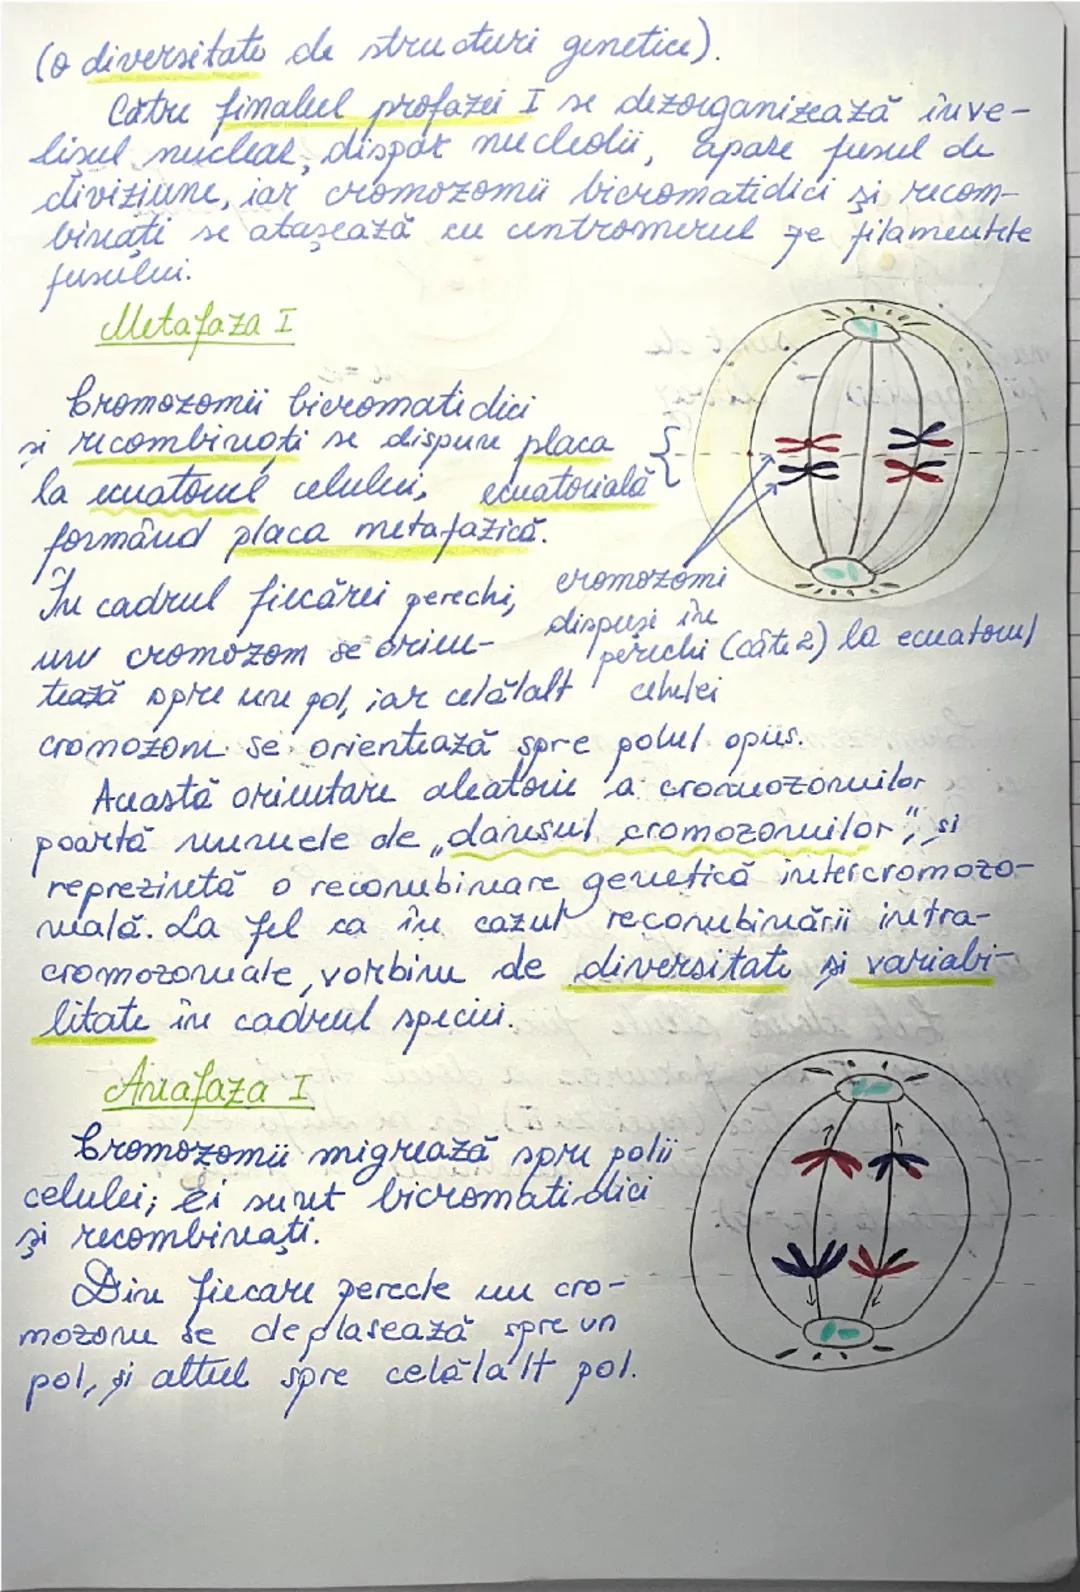 (o diversitate de structuri genetice).
Către finalul profazei I se dezorganizează înve-
lișul nuclear, dispar nucleolii, apare fusul de
diviziune, iar cromozomii bicromatidici și recom-
binați se atașează cu centromerul pe filamentele
fusului.
Metafaza I
Cromozomii bicromatidici
și recombinați se dispun
la ecuatorul celulei,
formând placa metafazică.
placa
ecuatorială
În cadrul fiecărei perechi,
un cromozom se orien-
tează spre un pol, iar celălalt
cromozom se orientează spre polul opus.
cromozomi
dispuși în
perechi (câte 2) la ecuatorul
celulei
Această orientare aleatorie a cromozomilor
poartă numele de „dansul cromozomilor", și
reprezintă o recombinare genetică intercromozo-
mală. La fel ca în cazul recombinării intra-
cromozomale, vorbim de diversitate și variabi-
litate în cadrul speciei.
Anafaza I
Cromozomii migrează spre polii
celulei; Ei sunt bicromatidici
și recombinați.
Din fiecare pereche un cro-
mozom se deplasează spre un
pol, și altul spre celălalt pol.